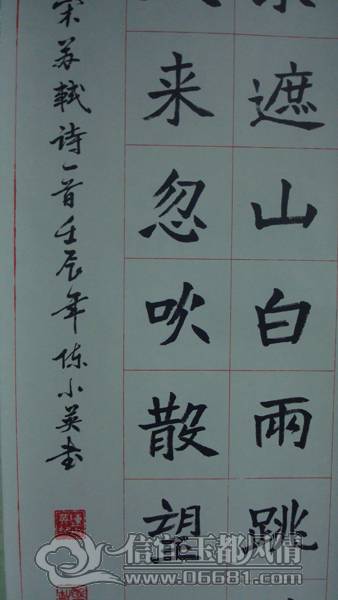 遮山白雨跳
来忽吹散望
宋苏轼诗一首壬辰年陈小英书
信宜玉都风情
www.06681.com